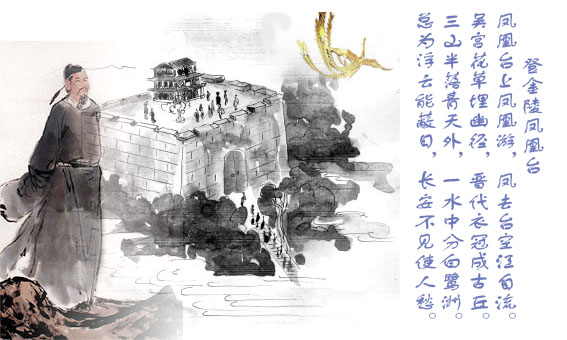 登金陵凤凰台
凤凰台上凤凰游，凤去台空江自流。
吴宫花草埋幽径，晋代衣冠成古丘。
三山半落青天外，一水中分白鹭洲。
总为浮云能蔽日，长安不见使人愁。